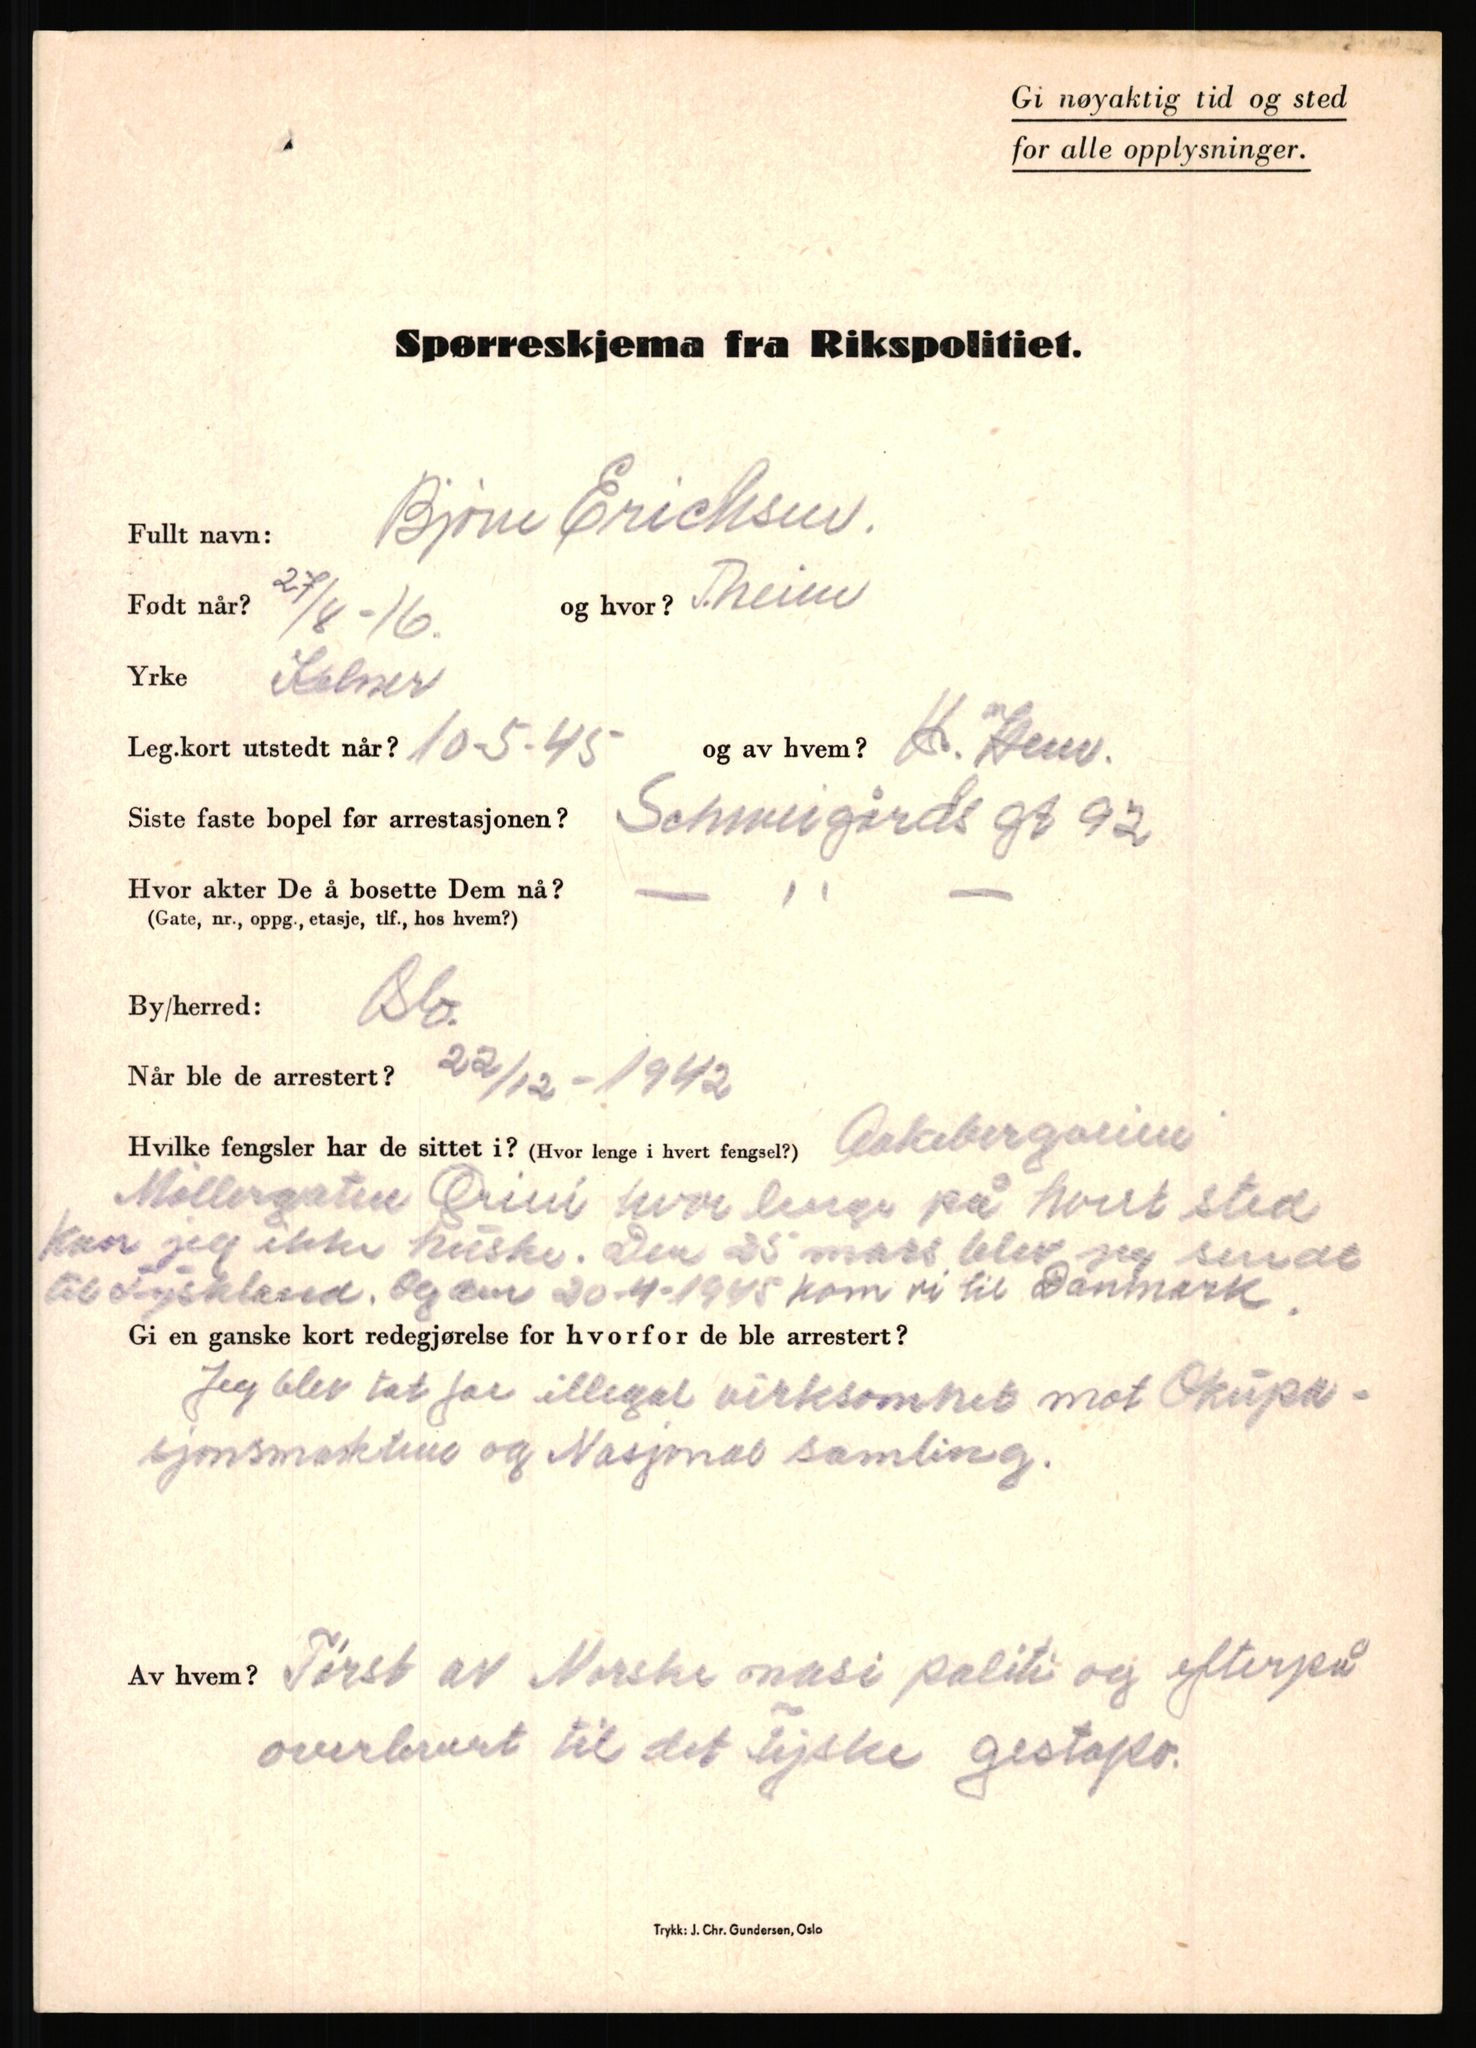 Gi nøyaktig tid og sted
for alle opplysninger.
Spørreskjema fra Rikspolitiet.
Fullt navn: Bjørn Erichsen.
Født når? 27/8-16. og hvor? T.heim
Yrke Kelner
Leg.kort utstedt når? 10-5-45 og av hvem? K.
Siste faste bopel før arrestasjonen? Schweigårds gt 92
Hvor akter De å bosette Dem nå? — '' —
(Gate, nr., oppg., etasje, tlf., hos hvem?)
By/herred: Oslo.
Når ble de arrestert? 22/12-1942
Hvilke fengsler har de sittet i? (Hvor lenge i hvert fengsel?) Aakebergveien
Møllergaten Grini hvor lenge på hvert sted
kan jeg ikke huske. Den 25 mars blev jeg sendt
til Tyskland. Og den 20-4-1945 kom vi til Danmark.
Gi en ganske kort redegjørelse for hvorfor de ble arrestert?
Jeg blev tat for illegal virksomhet mot Okupa-
sjonsmakten og Nasjonal samling.
Av hvem? Først av Norske nasi politi og efterpå
overlevert til det Tyske gestapo.
Trykk: J. Chr. Gundersen, Oslo